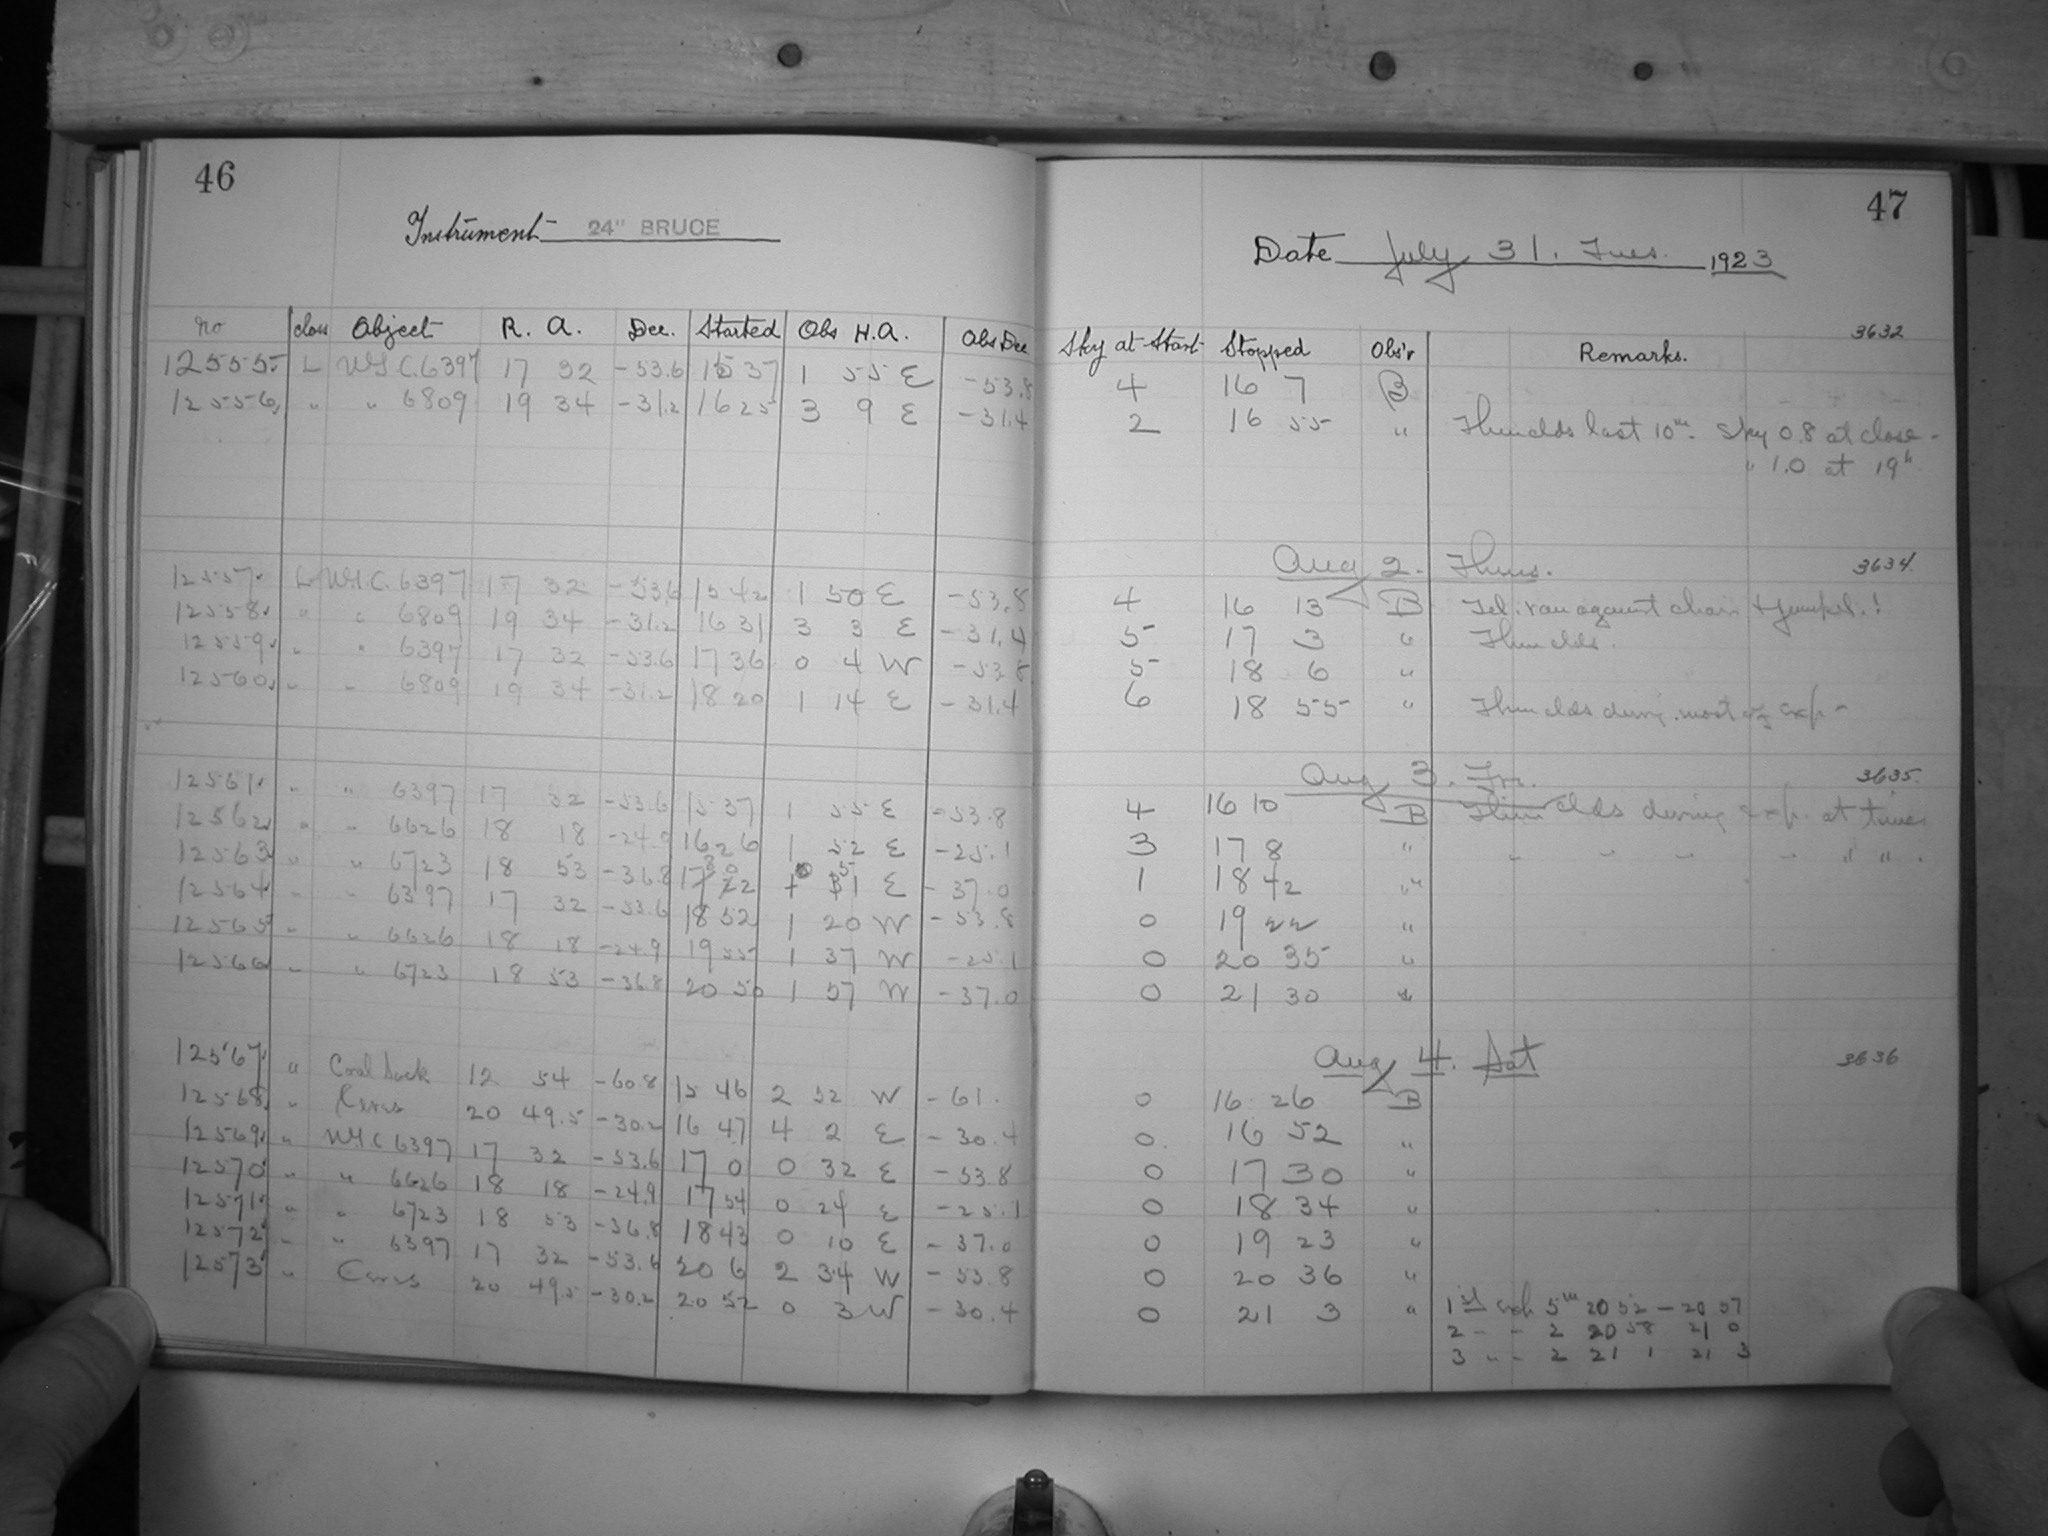 46
Instrument 24" BRUCE
no class Object R. A. Dec. Started Obs H.A. Obs Dec
12555 L N.G.C. 6397 17 32 -53.6 15 37 1 55 E -53.8
12556 " " 6809 19 34 -31.2 16 25 3 9 E -31.4
12557 L N.G.C. 6397 17 32 -53.6 15 42 1 50 E -53.8
12558 " " 6809 19 34 -31.2 16 31 3 3 E -31.4
12559 " " 6397 17 32 -53.6 17 36 0 4 W -53.8
12560 " " 6809 19 34 -31.2 18 20 1 14 E -31.4
12561 " " 6397 17 32 -53.6 15 37 1 55 E -53.8
12562 " " 6626 18 18 -24.9 16 26 1 52 E -25.1
12563 " " 6723 18 53 -36.8 17 E -37.0
12564 " " 6397 17 32 -53.6 18 52 1 20 W -53.8
12565 " " 6626 18 18 -24.9 19 55 1 37 W -25.1
12566 " " 6723 18 53 -36.8 20 50 1 57 W -37.0
12567 " Coal Sack 12 54 -60.8 15 46 2 52 W -61.
12568 " Ceres 20 49.5 -30.2 16 47 4 2 E -30.4
12569 " N.G.C 6397 17 32 -53.6 17 0 0 32 E -53.8
12570 " " 6626 18 18 -24.9 17 54 0 24 E -25.1
12571 " " 6723 18 53 -36.8 18 43 0 10 E -37.0
12572 " " 6397 17 32 -53.6 20 6 2 34 W -53.8
12573 " Ceres 20 49.5 -30.2 20 52 0 3 W -30.4
47
Date July 31. Tues. 1923
3632
Sky at Start Stopped Obs'r Remarks.
4 16 7 B
2 16 55 " Thin clds last 10m. Sky 0.8 at close -
" 1.0 at 19h
Aug 2. Thurs. 3634.
4 16 13 B Tel. ran against chair & jumped.!
5 17 3 " Thin clds.
5 18 6 "
6 18 55 " Thin clds during most of exp -
Aug 3. Fri. 3635.
4 16 10 B Thin clds during exp. at times
3 17 8 " - - - - " " .
1 18 42 "
0 19 22 "
0 20 35 "
0 21 30 "
Aug 4. Sat 3636
0 16 26 B
0. 16 52 "
0 17 30 "
0 18 34 "
0 19 23 "
0 20 36 "
0 21 3 " 1st exp 5m 20 52 - 20 57
2 - - 2 20 58 21 0
3 " - 2 21 1 21 3